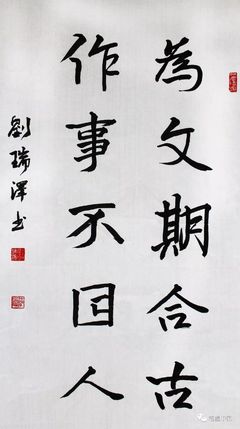 為文期合古
作事不因人
劉瑞澤书